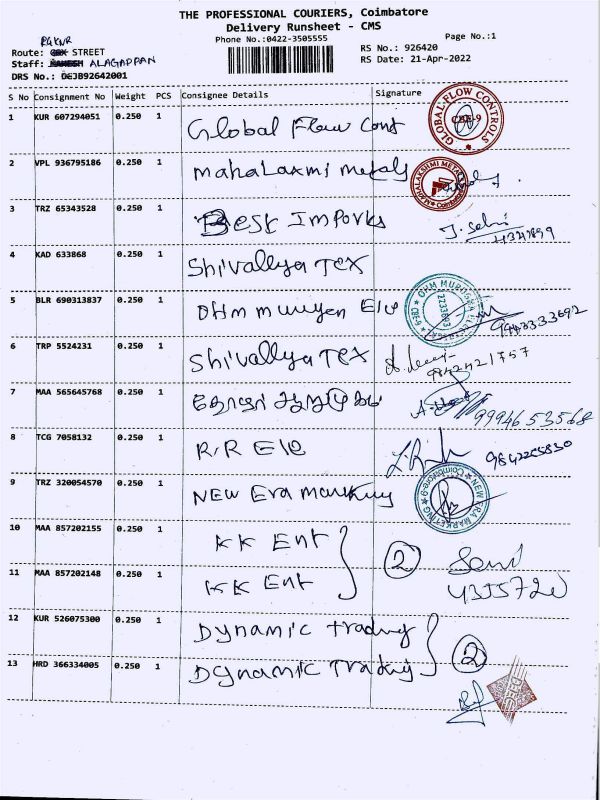 THE PROFESSIONAL COURIERS, Coimbatore
Delivery Runsheet - CMS
Phone No.:0422-3505555
Page No.:1
Route: STREET
RS No.: 926420
Staff: ALAGAPPAN
RS Date: 21-Apr-2022
DRS No.: DEJB92642001
S No Consignment No Weight PCS Consignee Details Signature
1 KUR 607294051 0.250 1 Global Flow Cont
GLOBAL FLOW CONTROLS CBE-9
2 VPL 936795186 0.250 1 Mahalaxmi Metals
3 TRZ 65343528 0.250 1 Best Imports
4 KAD 633868 0.250 1 Shivallya Tex
5 BLR 690313837 0.250 1 OHm Murugan Ele
2233693
6 TRP 5524231 0.250 1 Shivallya Tex
9842421757
7 MAA 565645768 0.250 1
9994653568
8 TCG 7058132 0.250 1 R.R Ele
9 TRZ 320054570 0.250 1 New Era Marketing
NEW ERA MARKETING Coimbatore-9
10 MAA 857202155 0.250 1 KK Ent
2
11 MAA 857202148 0.250 1 KK Ent
12 KUR 526075300 0.250 1 Dynamic Trading
2
13 HRD 366334005 0.250 1 Dynamic Trading